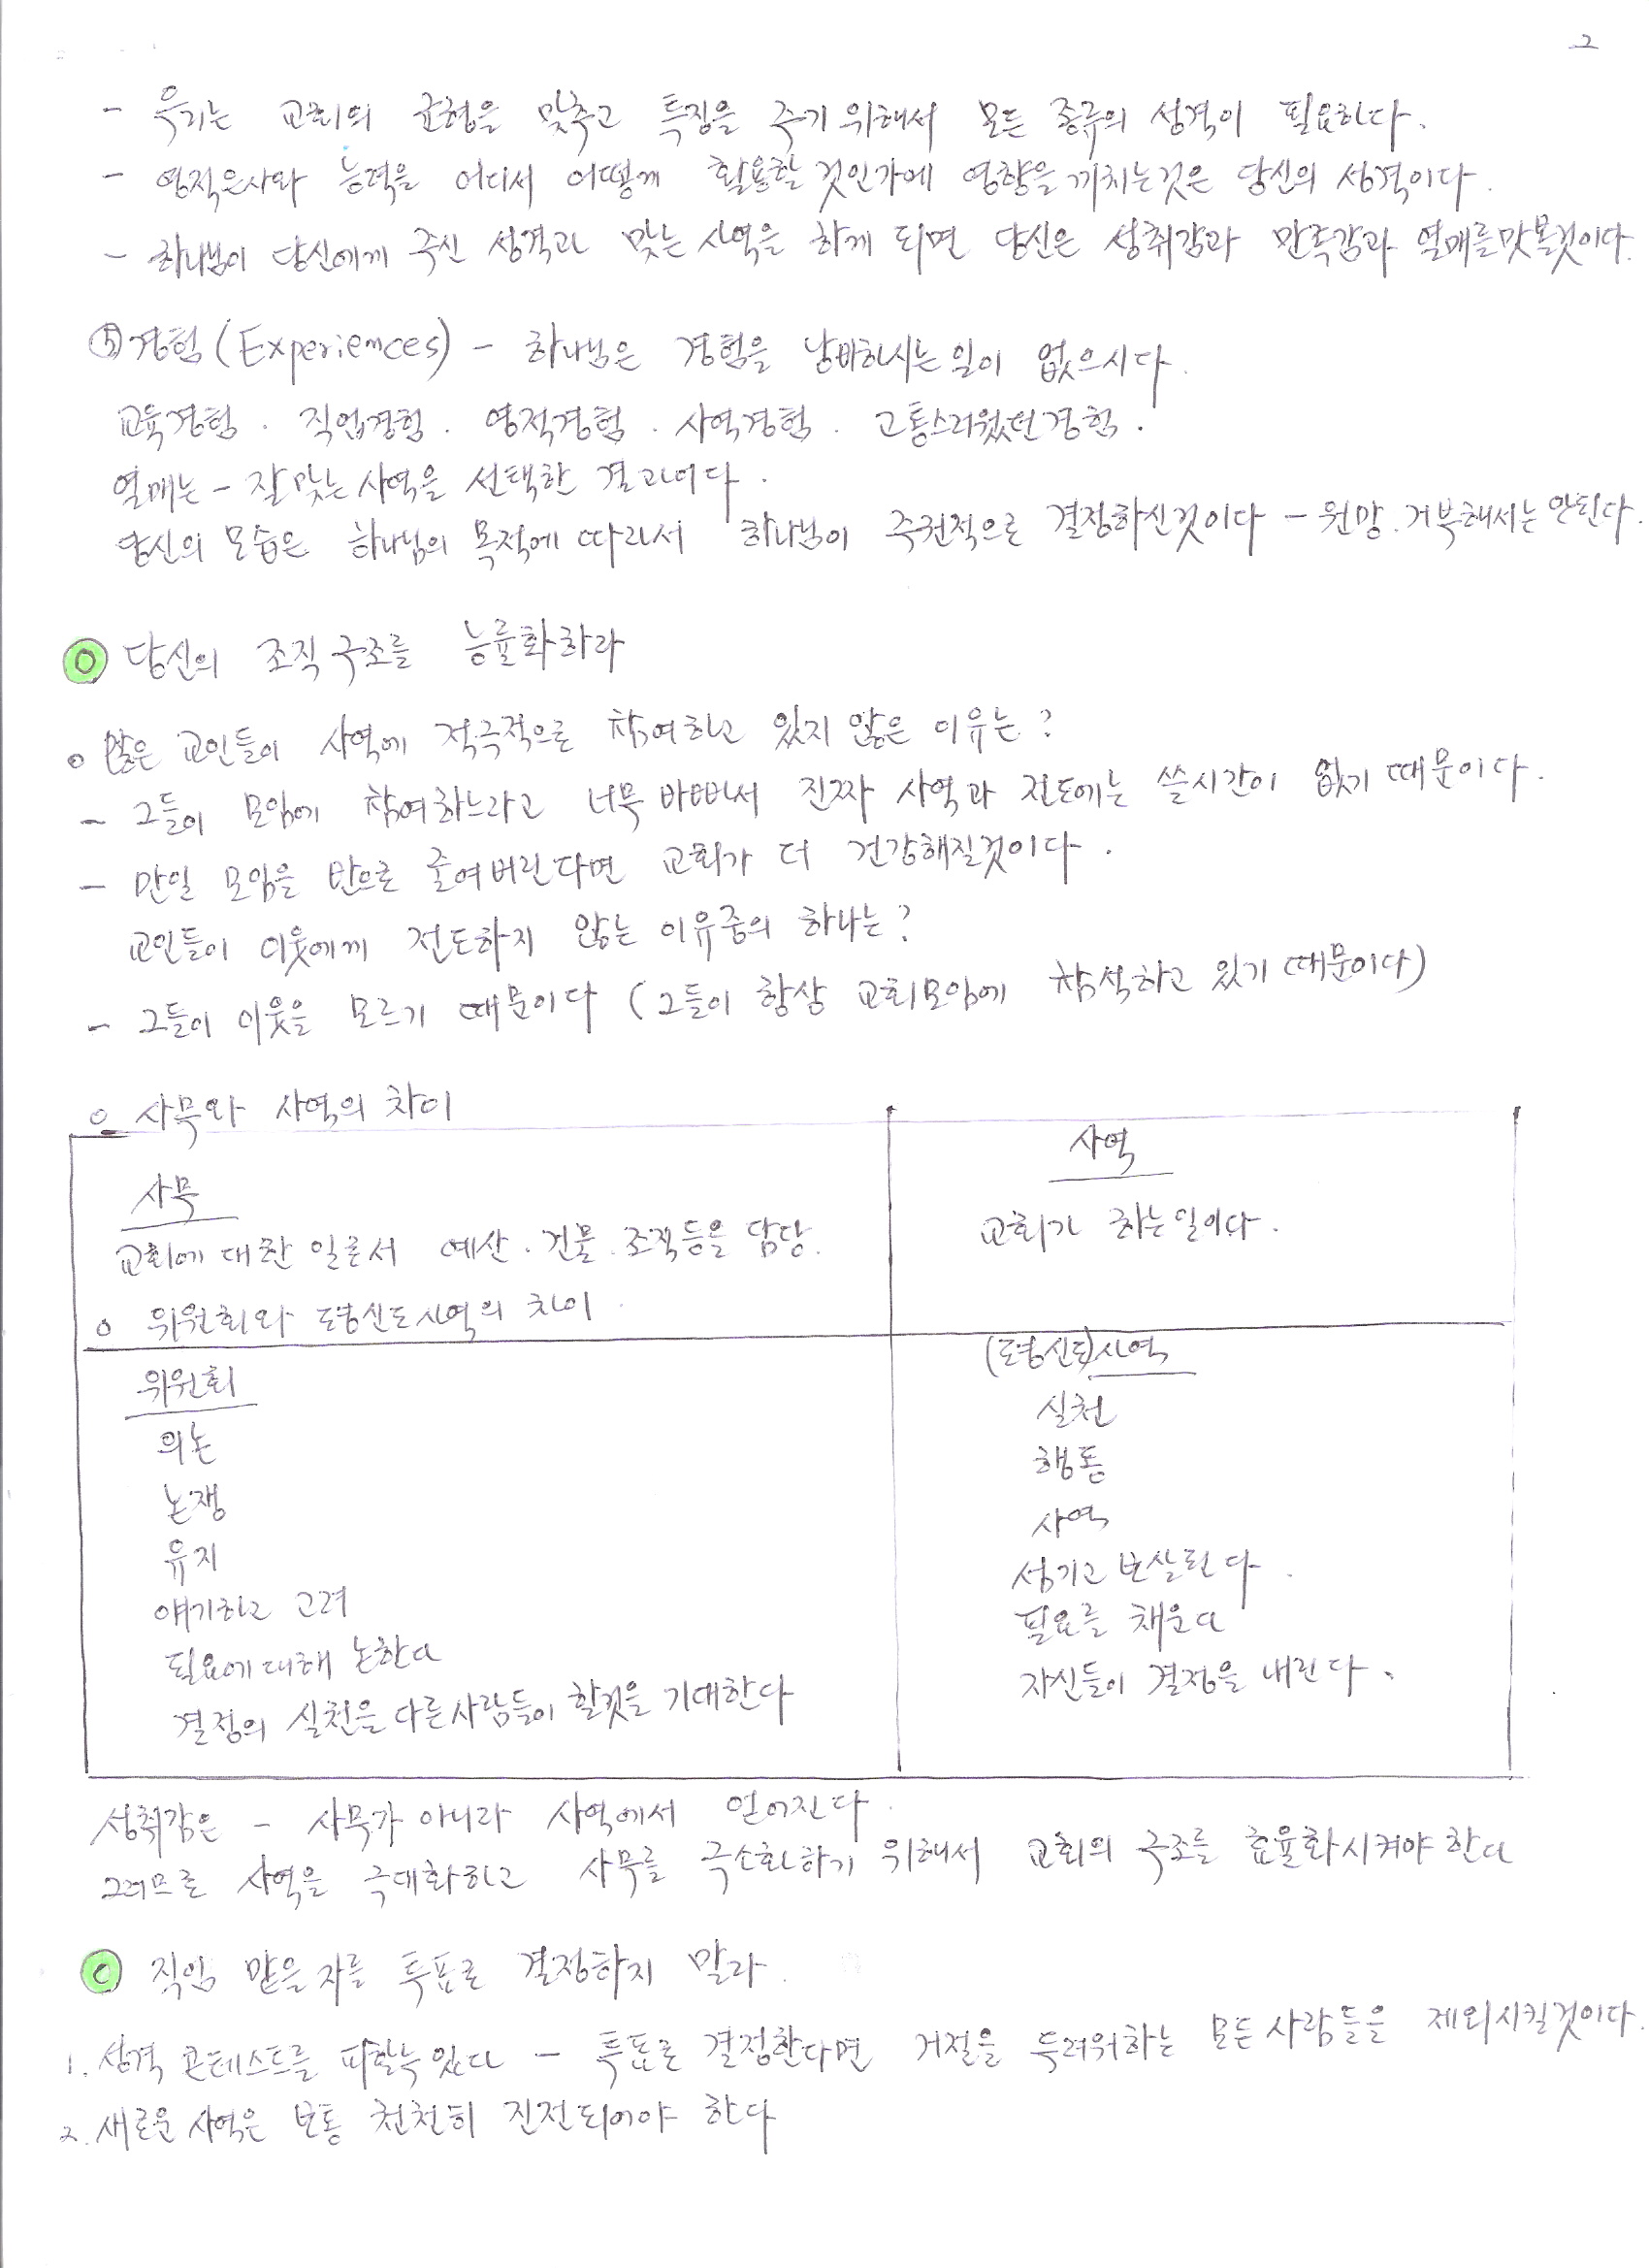 2
- 우리는 교회의 균형을 맞추고 특징을 주기 위해서 모든 종류의 성격이 필요하다.
- 영적은사와 능력을 어디서 어떻게 활용할 것인가에 영향을 끼치는것은 당신의 성격이다.
- 하나님이 당신에게 주신 성격과 맞는 사역을 하게 되면 당신은 성취감과 만족감과 열매를맛볼것이다.
⑤ 경험 (Experiences) - 하나님은 경험을 낭비하시는 일이 없으시다.
교육경험 . 직업경험 . 영적경험 . 사역경험 . 고통스러웠던경험 .
열매는 - 잘 맞는 사역을 선택한 결과이다 .
당신의 모습은 하나님의 목적에 따라서 하나님이 주권적으로 결정하신것이다 - 원망.거부해서는 안된다.
당신의 조직구조를 능률화하라
o 많은 교인들이 사역에 적극적으로 참여하고 있지 않은 이유는?
- 그들이 모임에 참여하느라고 너무 바빠서 진짜 사역과 전도에는 쓸시간이 없기 때문이다.
- 만일 모임을 반으로 줄여버린다면 교회가 더 건강해질것이다 .
교인들이 이웃에게 전도하지 않는 이유중의 하나는?
- 그들이 이웃을 모르기 때문이다 (그들이 항상 교회모임에 참석하고 있기 때문이다)
o 사무와 사역의 차이
사무
교회에 대한 일로서 예산 . 건물 . 조직등을 담당.
사역
교회가 하는일이다.
o 위원회와 평신도사역의 차이
위원회
의논
논쟁
유지
얘기하고 고려
필요에대해 논한다
결정의 실천을 다른사람들이 할것을 기대한다
(평신도)사역
실천
행동
사역
섬기고 보살핀다 .
필요를 채운다
자신들이 결정을 내린다 .
성취감은 - 사무가 아니라 사역에서 얻어진다
그러므로 사역을 극대화하고 사무를 극소화하기 위해서 교회의 구조를 효율화시켜야한다
직임 맡을자를 투표로 결정하지 말라.
1. 성격 콘테스트를 피할수있다 - 투표로 결정한다면 거절을 두려워하는 모든사람들을 제외시킬것이다.
2. 새로운 사역은 보통 천천히 진전되어야 한다